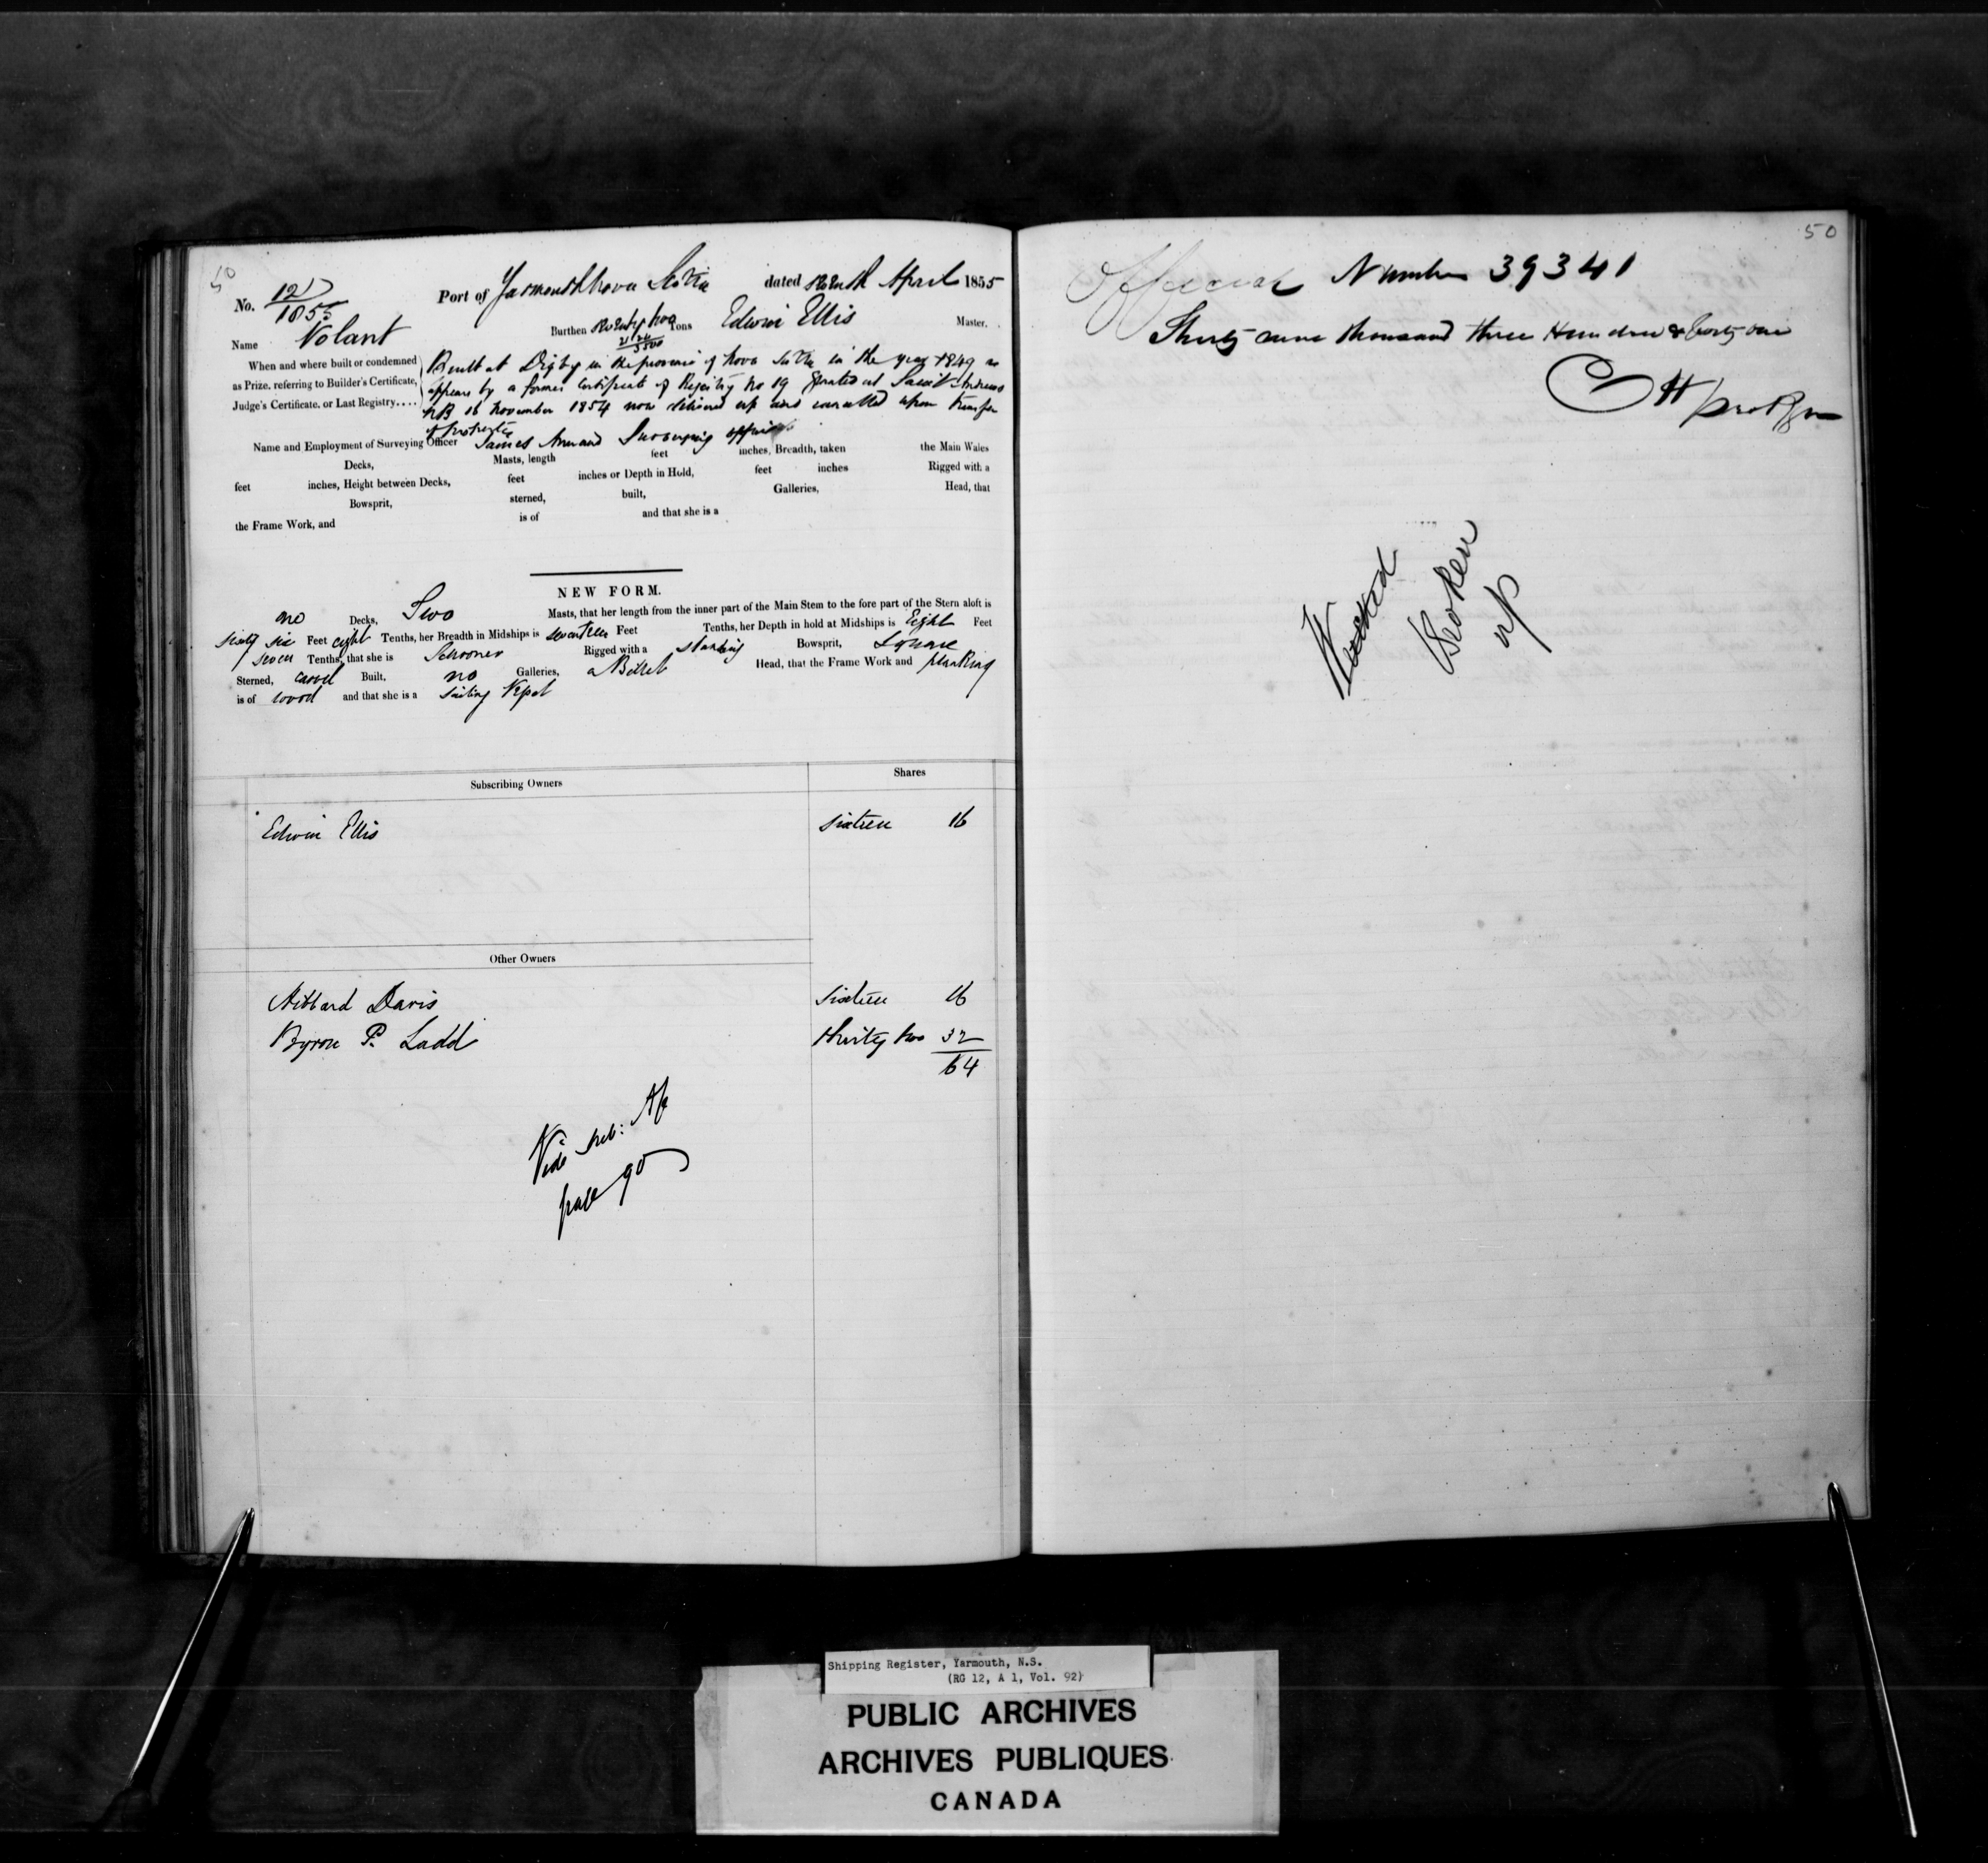 50
No. 12/1855 Port of Yarmouth Nova Scotia dated Seventh April 1855
Name Volant Burthen Seventy two 21 24/3500 Tons Edwin Ellis Master.
When and where built or condemned as Prize, referring to Builder's Certificate, Judge's Certificate, or Last Registry....
Built at Digby in the province of Nova Scotia in the year 1849 as
appears by a former Certificate of Registry No 19 Granted at Saint Andrews
NB 16 November 1854 now delivered up and cancelled upon transfer
of property
Name and Employment of Surveying Officer James Surveying officer
Decks, Masts, length feet inches, Breadth, taken the Main Wales
feet inches, Height between Decks, feet inches or Depth in Hold, feet inches Rigged with a
Bowsprit, sterned, built, Galleries, Head, that
the Frame Work, and is of and that she is a
NEW FORM.
one Decks, Two Masts, that her length from the inner part of the Main Stem to the fore part of the Stern aloft is
sixty six Feet eight Tenths, her Breadth in Midships is seventeen Feet Tenths, her Depth in hold at Midships is Eight Feet
seven Tenths, that she is Schooner Rigged with a standing Bowsprit, Square
Sterned, carvel Built, no Galleries, a Billet Head, that the Frame Work and planking
is of wood and that she is a sailing Vessel
Subscribing Owners Shares
Edwin Ellis sixteen 16
Other Owners
Hibbard Davis sixteen 16
Byron P. Ladd Thirty two 32
64
Vide
page 90
50
Official Number 39341
Thirty nine thousand three Hundred & forty one
Broken
up
Shipping Register, Yarmouth, N.S.
(RG 12, A 1, Vol. 92)
PUBLIC ARCHIVES
ARCHIVES PUBLIQUES
CANADA